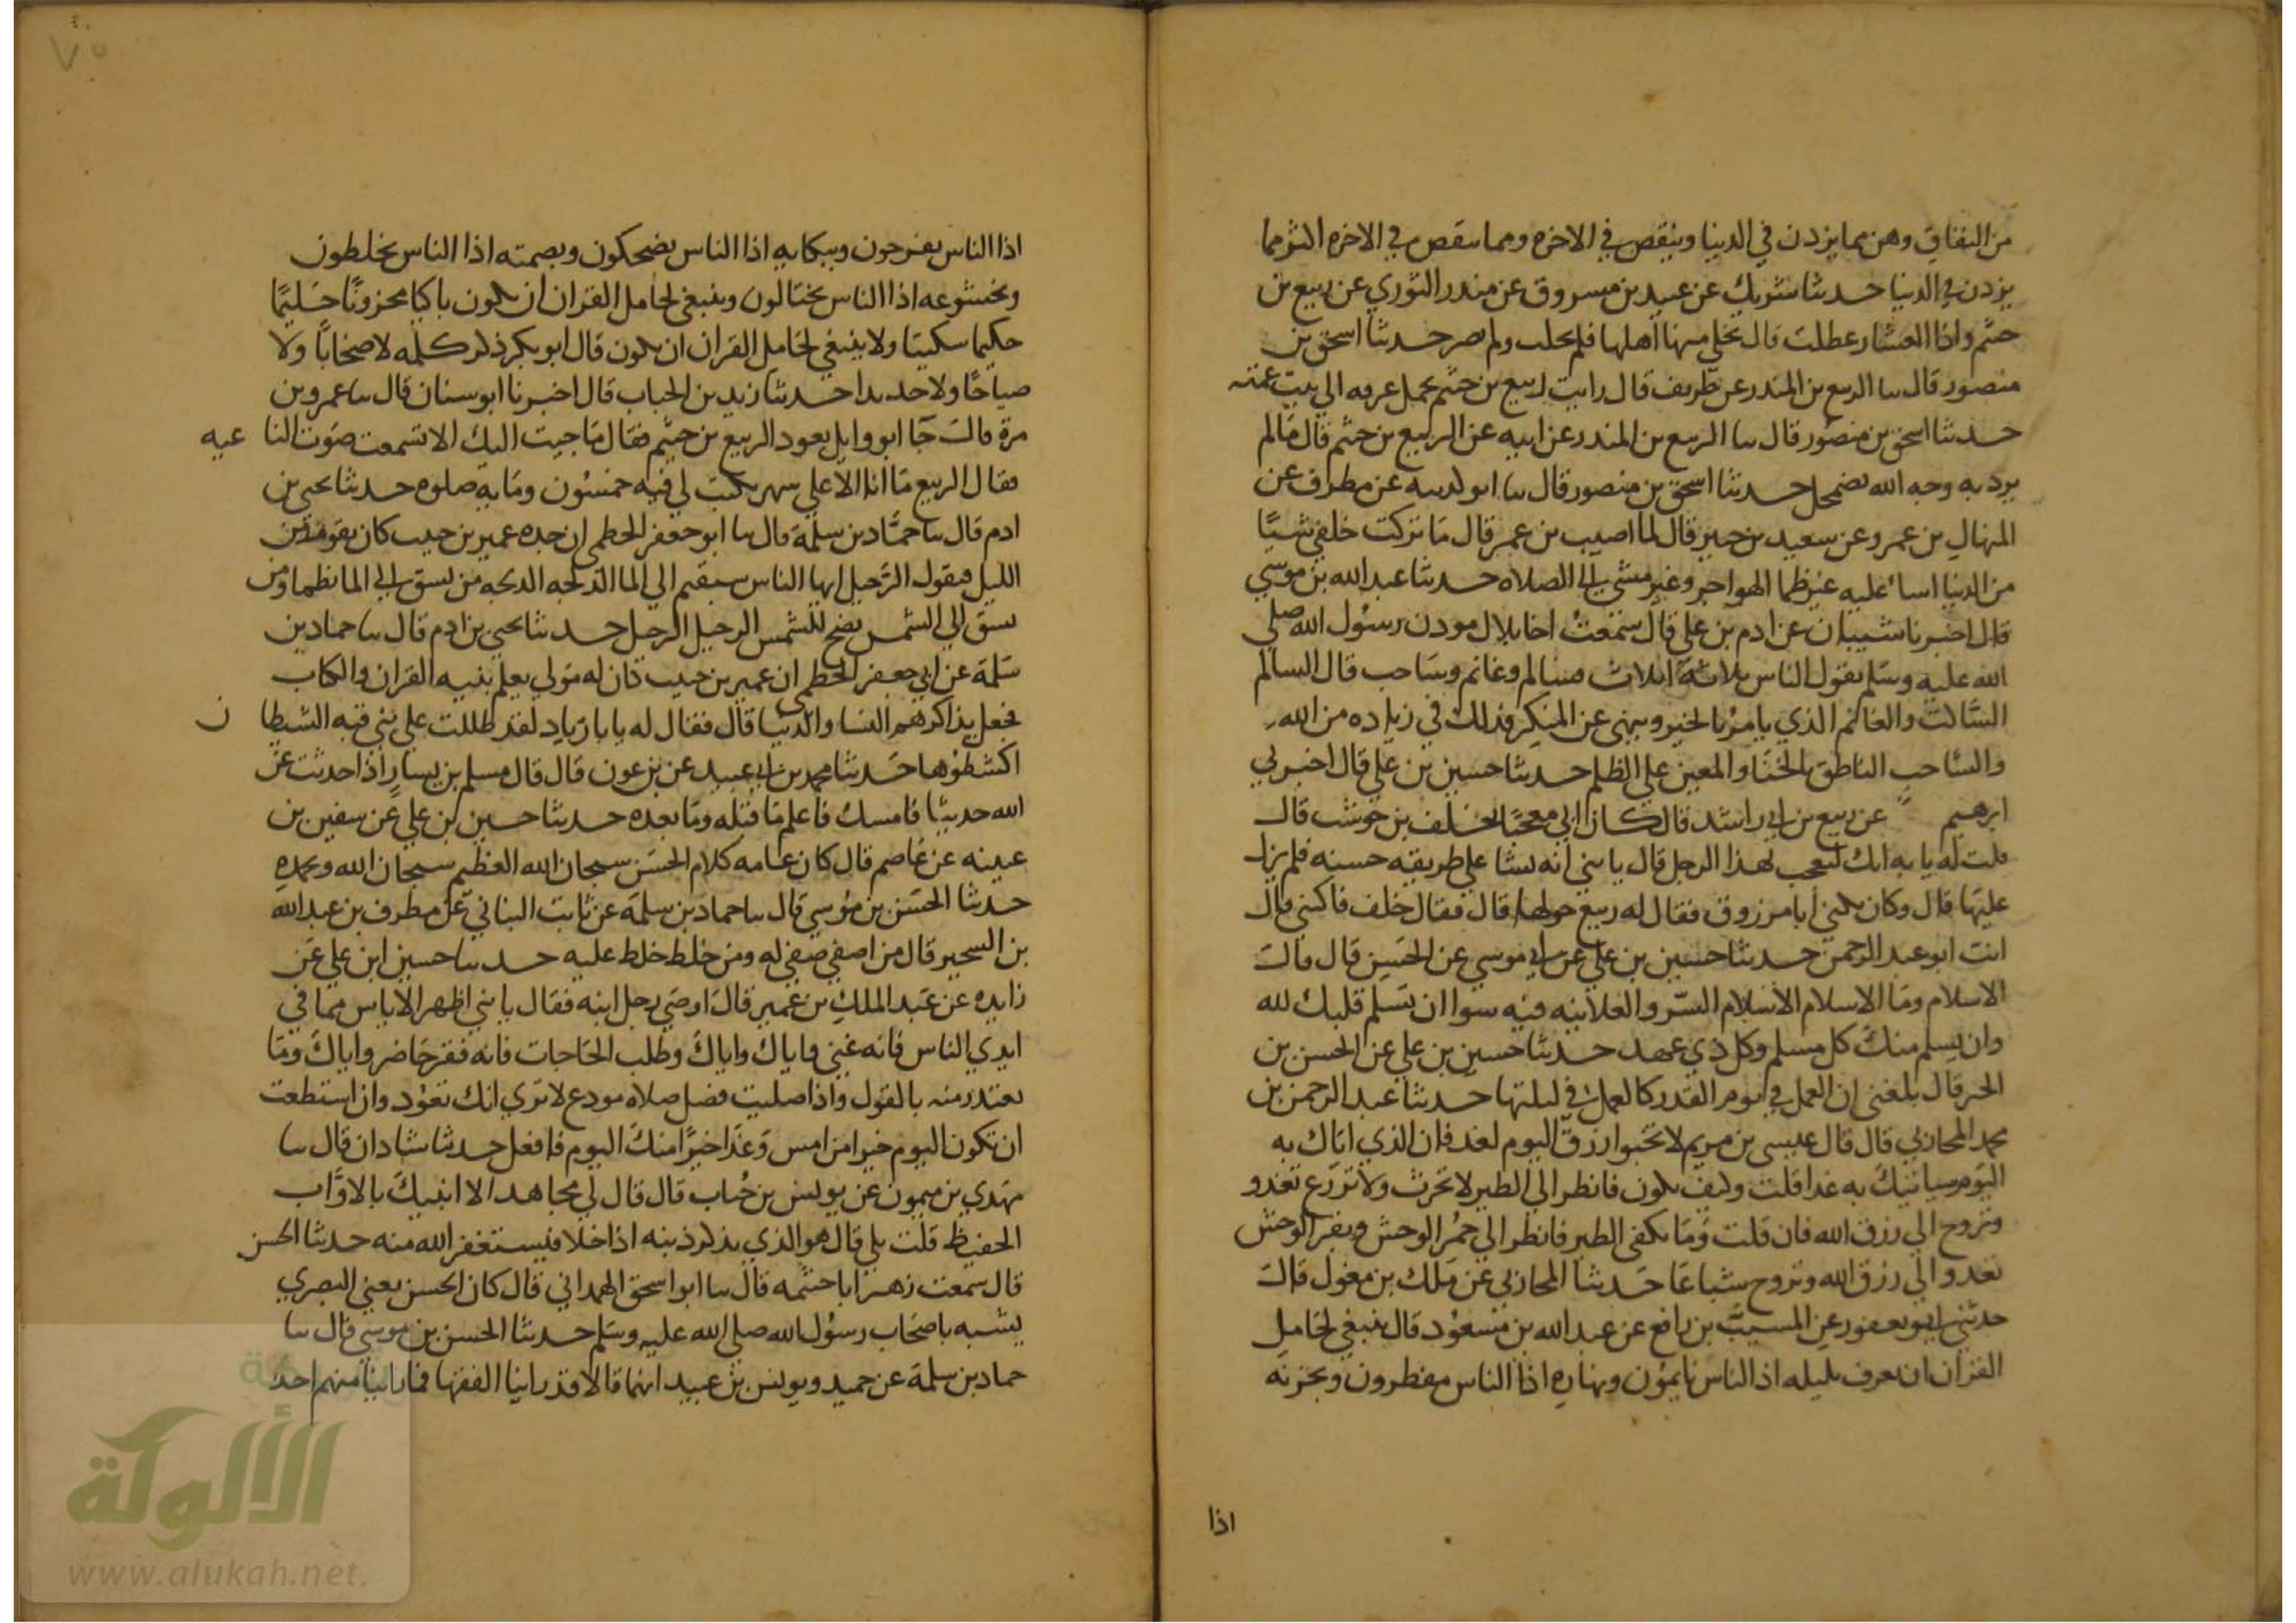 من النفاق وهن مما يزدن في الدنيا وينقص في الاخره ومما ينقص في الاخره اكثر مما
يزدن في الدنيا حدثنا شريك عن عبيد بن مسروق عن منذر الثوري عن ربيع بن
خثم واذا العشار عطلت قال تخلي منها اهلها فلم تحلب ولم تصر حدثنا اسحق بن
منصور قال سا الربيع بن المنذر عن طريف قال رايت ربيع بن خثم يحمل عرقه الي بيت عمته
حدثنا اسحق بن منصور قال سا الربيع بن المنذر عن ابيه عن الربيع بن خثم قال ما لم
يرد به وجه الله يضمحل حدثنا اسحق بن منصور قال سا ابو كدينه عن مطرف عن
المنهال بن عمرو عن سعيد بن جبير قال لما اصيب بن عمر قال ما تركت خلفي شيئا
من الدنيا اسا عليه غير ظما الهواجر وغير مشي الي الصلاه حدثنا عبد الله بن موسي
قال اخبرنا شيبان عن ادم بن علي قال سمعت اخا بلال مودن رسول الله صلي
الله عليه وسلم يقول الناس ثلاثة اثلاث فسالم وغانم وشاحب قال السالم
الساكت والغانم الذي يامر بالخير وينهي عن المنكر فذلك في زياده من الله
والشاحب الناطق بالخنا والمعين علي الظلم حدثنا حسين بن علي قال اخبرني
ابرهيم عن ربيع بن ابي راشد قال كان ابي معجبا بخلف بن حوشب قال
قلت له يا به انك لتعجب لهذا الرجل قال يا بني انه نشا علي طريقه حسنه فلم يزل
عليها قال وكان يكني ابا مرزوق فقال له ربيع حولها قال فقال خلف فاكنني قال
انت ابو عبد الرحمن حدثنا حسين بن علي عن ابي موسي عن الحسن قال قال
الاسلام وما الاسلام الاسلام السر والعلانيه فيه سوا ان تسلم قلبك لله
وان يسلم منك كل مسلم وكل ذي عهد حدثنا حسين بن علي عن الحسن بن
الحر قال بلغني ان العمل في يوم القدر كالعمل في ليلتها حدثنا عبد الرحمن بن
محمد المحاربي قال قال عيسي بن مريم لا تخبوا رزق اليوم لغد فان الذي اتاك به
اليوم سياتيك به غدا قلت وكيف يكون فانظر الي الطير لا تحرث ولا تزرع تغدو
وتروح الي رزق الله فان قلت وما يكفي الطير فانظر الي حمر الوحش وبقر الوحش
تغدوا الي رزق الله وتروح شباعا حدثنا المحاربي عن ملك بن مغول قال
حدثني ابو يعفور عن المسيب بن رافع عن عبد الله بن مسعود قال ينبغي لحامل
القران ان يعرف بليله اذ الناس نايمون وبنهاره اذا الناس مفطرون وبحزنه
اذا
اذا الناس يفرحون وببكايه اذا الناس يضحكون وبصمته اذا الناس يخلطون
وبخشوعه اذا الناس يختالون وينبغي لحامل القران ان يكون باكيا محزونا حليما
حكيما سكيتا ولا ينبغي لحامل القران ان يكون قال ابو بكر ذكر كلمه لا صخابا ولا
صياحا ولا حديدا حدثنا زيد بن الحباب قال اخبرنا ابو سنان قال سا عمرو بن
مرة قال جا ابو وايل يعود الربيع بن خثم فقال ما جيت اليك الا تسمعت صوت الناعيه
فقال الربيع ما انا الا علي شهر يكتب لي فيه خمسون ومايه صلوه حدثنا يحيي بن
ادم قال سا حماد بن سلمة قال سا ابو جعفر الخطمي ان جده عمير بن حبيب كان يقوم من
الليل فيقول الرحيل ايها الناس سبقتم الي الما الدلجه الدلجه من يسبق الي الما يظما ومن
يسبق الي الشمس يضح للشمس الرحيل الرحيل حدثنا يحيي بن ادم قال سا حماد بن
سلمة عن ابي جعفر الخطمي ان عمير بن حبيب كان له مولي يعلم بنيه القران والكتاب
فجعل يذاكرهم النسا والدنيا قال فقال له يا با زياد لقد ظللت علي بني قبه الشيطان
اكشطوها حدثنا محمد بن ابي عبيد عن بن عون قال قال مسلم بن يسار اذا حدثت عن
الله حديثا فامسك فاعلم ما قبله وما بعده حدثنا حسين بن علي عن سفين بن
عيينه عن عاصم قال كان عامه كلام الحسن سبحان الله العظيم سبحان الله وبحمده
حدثنا الحسن بن موسي قال سا حماد بن سلمة عن ثابت البناني عن مطرف بن عبد الله
بن الشخير قال من اصفي صفي له ومن خلط خلط عليه حدثنا حسين ابن علي عن
زايده عن عبد الملك بن عمير قال اوصي رجل ابنه فقال يا بني اظهر الاياس مما في
ايدي الناس فانه غني واياك واياك وطلب الحاجات فانه فقر حاضر واياك وما
يعتذر منه بالقول واذا صليت فصل صلاه مودع لا تري انك تعود وان استطعت
ان تكون اليوم خيرا من امس وغدا خيرا منك اليوم فافعل حدثنا شاذان قال سا
مهدي بن ميمون عن يونس بن خباب قال قال لي مجاهد الا انبيك بالاواب
الحفيظ قلت بلي قال هو الذي يذكر ذنبه اذا خلا فيستغفر الله منه حدثنا الحسن
قال سمعت زهيرا ابا خثيمه قال سا ابو اسحق الهمداني قال كان الحسن يعني البصري
يشبه باصحاب رسول الله صلي الله عليه وسلم حدثنا الحسن بن موسي قال سا
حماد بن سلمة عن حميد ويونس بن عبيد انهما قالا قد راينا الفقها فما راينا منهم احدا
الألوكة
www.alukah.net